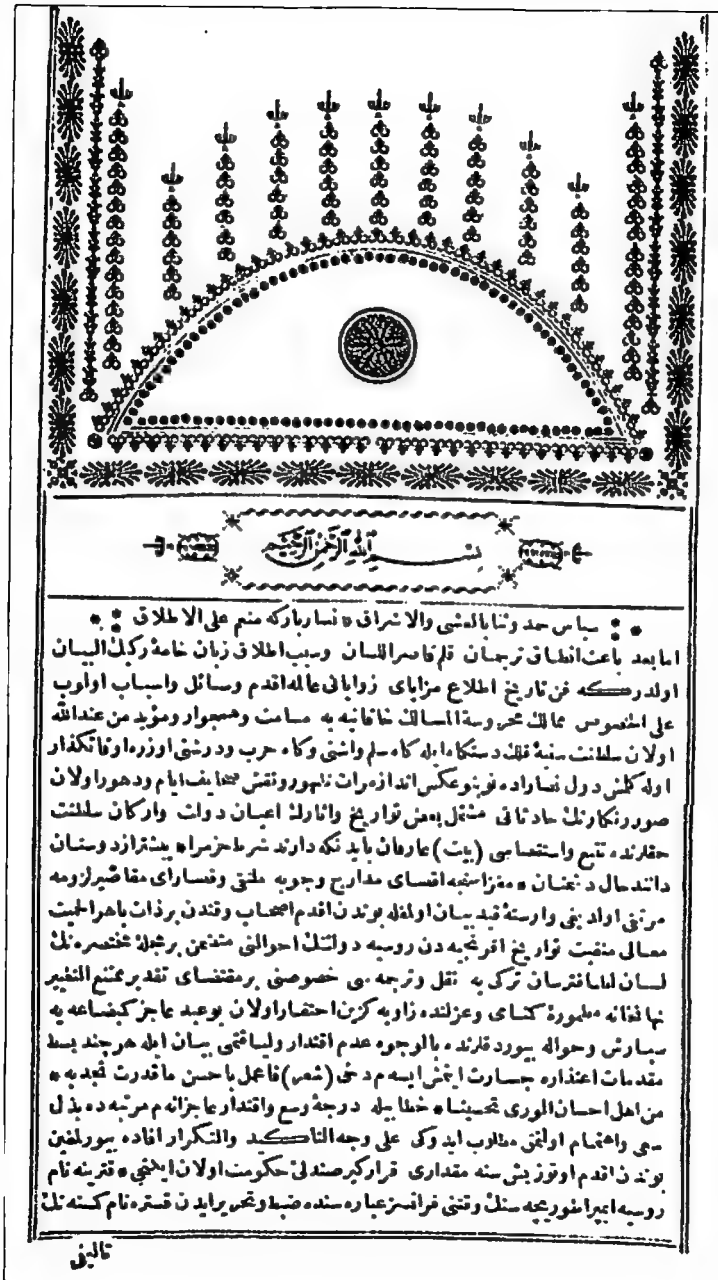 بسم الله الرحمن الرحيم
سپاس حمد وثنا بالعشى والاشراق * نسار بارکه منعم على الاطلاق
اما بعد باعث انطاق ترجمان قلم قاصر اللسان وسبب اطلاق زبان خامهٔ رکيك البيان
اولدرکه فن تاريخ اطلاع مزاياى زواياى عالمه اقدم وسائل واسباب اولوب
على الخصوص ممالك محروسة المسالك خاقانيه به مسامت وهمجوار ومؤيد من عندالله
اولان سلطنت سنيهٔ فلك دستکاه ايله کاه سلم واشتى وکاه حرب ودرشتى اوزره اوقاتکذار
اوله کلمش دول نصاراده نوبنو عکس انداز مرآت ظهور ونقش صحايف ايام ودهور اولان
صور رنکارنك حادثاتى مشتمل بعض تواريخ واثارك اعيان دولت وارکان سلطنت
حقلرنده تتبع واستقصاسى (بيت) عارفان بايد نکه دارند شرط حزم را * بيشتر از دوستان
دانند حال دشمنان * مغزاسنجه اقصاى مدارج وجوبه ملتقى وقصاراى مقاصير لزومه
مرتقى اولديغى وارستهٔ قيد بيان اولمغله بوندن اقدم اصحاب وقتدن بر ذات باهر الحميت
معالى منقبت تواريخ افرنجيه دن روسيه دولتنك احوالنى متضمن بر مجلهٔ مختصره نك
لسان لطافترسان ترکى به نقل وترجمه سى خصوصنى بر مقتضاى تقدير ممتنع التغيير
نهانخانه مطمورهٔ کمنامى وعزلتده زاويه کزين احتصار اولان بو عبد عاجز کم بضاعه يه
سپارش وحواله بيوردقلرنده بالوجوه عدم اقتدار ولياقتمى بيان ايله هر چند بسط
مقدمات اعتذاره جسارت ايتمش ايسه م دخى (شعر) فاعمل باحسن ما قدرت تعبديه *
من اهل احسان الورى تحسينا * خطابيله درجهٔ وسع واقتدار عاجزانه م مرتبه ده بذل
سعى واهتمام اولنمق مطلوب ايدوکى على وجه التأکيد والتکرار افاده بيورلمغين
بوندن اقدم اوتوز بش سنه مقدارى قرارکير صندلى حکومت اولان ايکنجى * قترينه نام
روسيه ايمپراطوريچه سنك وقتنى فرانسز عباره سنده ضبط وتحرير ايدن قستره نام کسنه نك
تأليفى